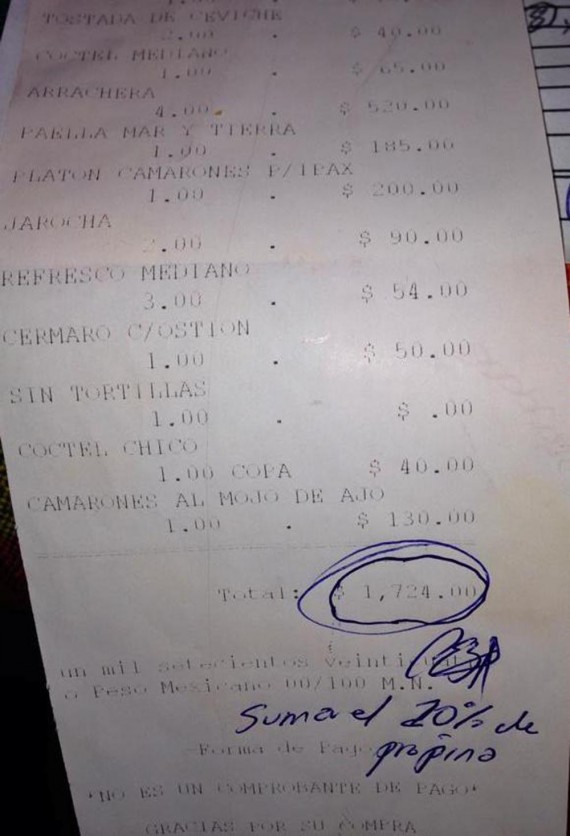 TOSTADA DE CEVICHE
2.00 . $ 40.00
COCTEL MEDIANO
1.00 . $ 65.00
ARRACHERA
4.00 . $ 520.00
PAELLA MAR Y TIERRA
1.00 . $ 185.00
PLATON CAMARONES P/1PAX
1.00 . $ 200.00
JAROCHA
2.00 . $ 90.00
REFRESCO MEDIANO
3.00 . $ 54.00
CERMARO C/OSTION
1.00 . $ 50.00
SIN TORTILLAS
1.00 . $ .00
COCTEL CHICO
1.00 COPA $ 40.00
CAMARONES AL MOJO DE AJO
1.00 . $ 130.00
Total: $ 1,724.00
un mil setecientos veinti
o Peso Mexicano 00/100 M.N.
Suma el 20% de
propina
Forma de Pago
*NO ES UN COMPROBANTE DE PAGO*
GRACIAS POR SU COMPRA